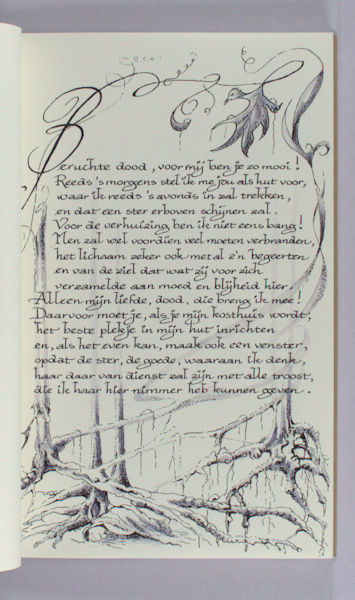 Beruchte dood, voor mij ben je zo mooi!
Reeds 's morgens stel ik me jou als hut voor,
waar ik reeds 's avonds in zal trekken,
en dat een ster erboven schijnen zal.
Voor de verhuizing ben ik niet eens bang!
Men zal veel voordien veel moeten verbranden,
het lichaam zeker ook met al z'n begeerten
en van de ziel dat wat zij voor zich
verzamelde aan moed en blijheid hier.
Alleen mijn liefde, dood, die breng ik mee!
Daarvoor moet je, als je mijn kosthuis wordt,
het beste plekje in mijn hut inrichten
en, als het even kan, maak ook een venster,
opdat de ster, de goede, waaraan ik denk,
haar daar van dienst zal zijn met alle troost,
die ik haar hier nimmer heb kunnen geven.